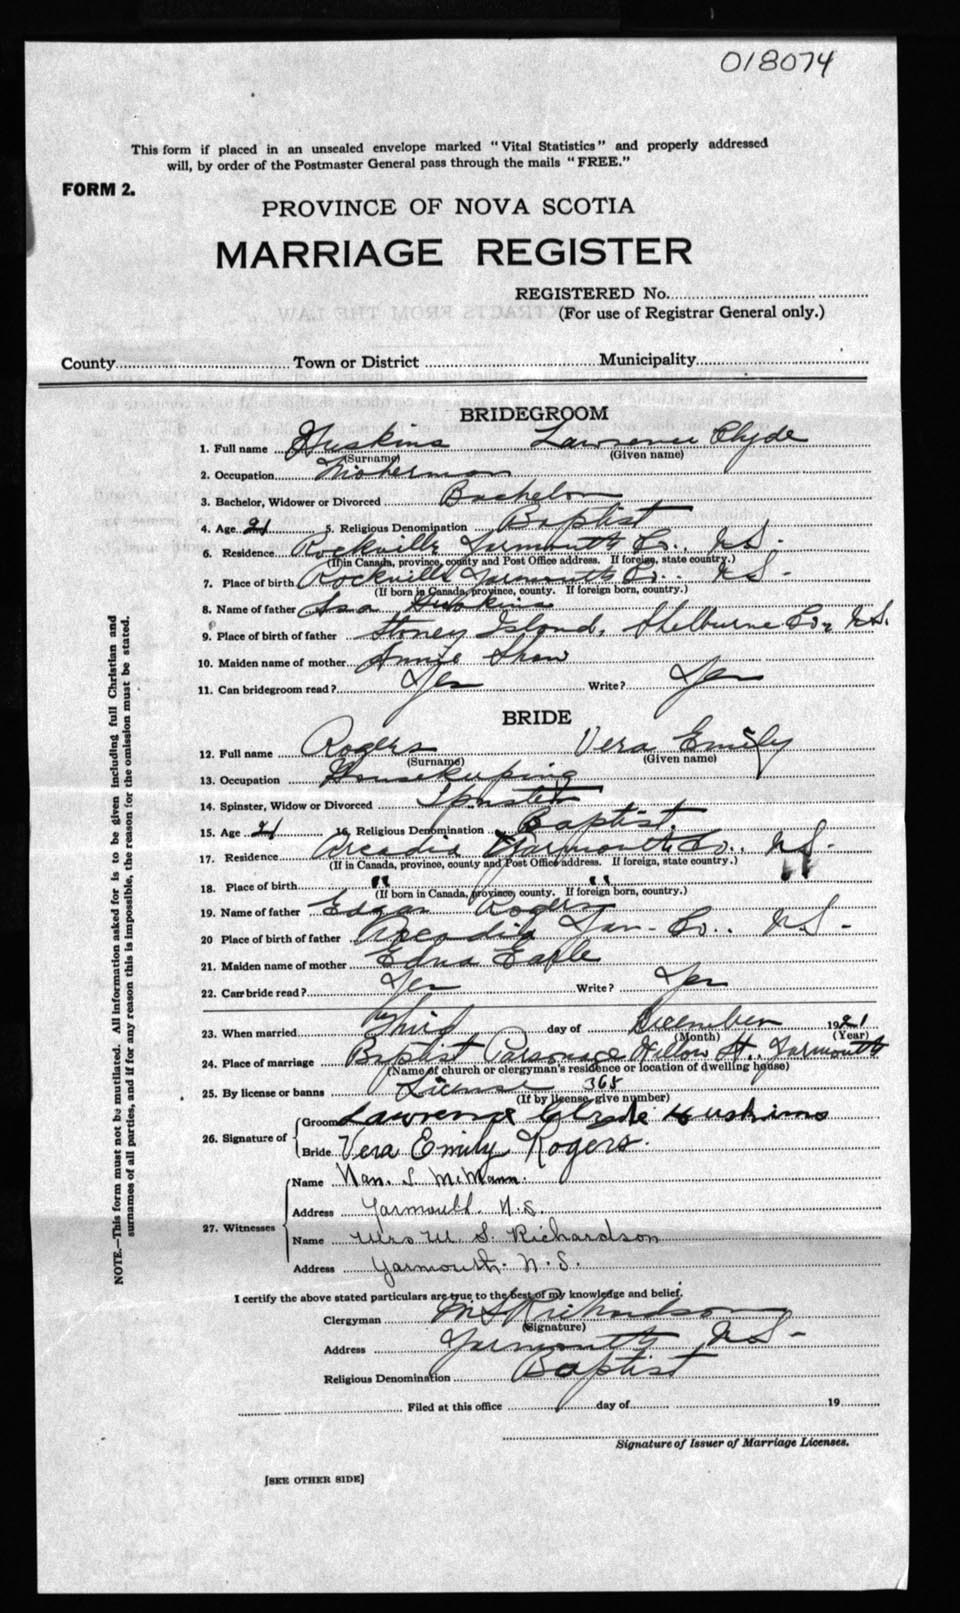 018074
This form if placed in an unsealed envelope marked "Vital Statistics" and properly addressed
will, by order of the Postmaster General pass through the mails "FREE."
FORM 2.
PROVINCE OF NOVA SCOTIA
MARRIAGE REGISTER
REGISTERED No.
(For use of Registrar General only.)
County Town or District Municipality
BRIDEGROOM
1. Full name Huskins Lawrence Clyde
(Surname) (Given name)
2. Occupation Fisherman
3. Bachelor, Widower or Divorced Bachelor
4. Age 21 5. Religious Denomination Baptist
6. Residence Rockville Yarmouth Co., N.S.
(If in Canada, province, county and Post Office address. If foreign, state country.)
7. Place of birth Rockville Yarmouth Co. N.S.
(If born in Canada, province, county. If foreign born, country.)
8. Name of father Asa Huskins
9. Place of birth of father Stoney Island, Shelburne Co., N.S.
10. Maiden name of mother Annie Shaw
11. Can bridegroom read? Yes Write? Yes
BRIDE
12. Full name Rogers Vera Emily
(Surname) (Given name)
13. Occupation Housekeeping
14. Spinster, Widow or Divorced Spinster
15. Age 21 16. Religious Denomination Baptist
17. Residence Arcadia Yarmouth Co., N.S.
(If in Canada, province, county and Post Office address. If foreign, state country.)
18. Place of birth " " "
(If born in Canada, province, county. If foreign born, country.)
19. Name of father Edgar Rogers
20 Place of birth of father Arcadia Yar. Co. N.S.
21. Maiden name of mother Edna Earle
22. Can bride read? Yes Write? Yes
23. When married Third day of December 1921
(Month) (Year)
24. Place of marriage Baptist Parsonage Willow St., Yarmouth
(Name of church or clergyman's residence or location of dwelling house)
25. By license or banns License 365
(If by license give number)
26. Signature of Groom Lawrence Clyde Huskins
Bride Vera Emily Rogers.
27. Witnesses
Name Nan. S. McMann.
Address Yarmouth N.S.
Name Mrs W. S. Richardson
Address Yarmouth. N.S.
I certify the above stated particulars are true to the best of my knowledge and belief.
Clergyman Richardson
(Signature)
Address Yarmouth N.S.
Religious Denomination Baptist
Filed at this office day of 19
Signature of Issuer of Marriage Licenses.
[SEE OTHER SIDE]
NOTE.—This form must not be mutilated. All information asked for is to be given including full Christian and
surnames of all parties, and if for any reason this is impossible, the reason for the omission must be stated.